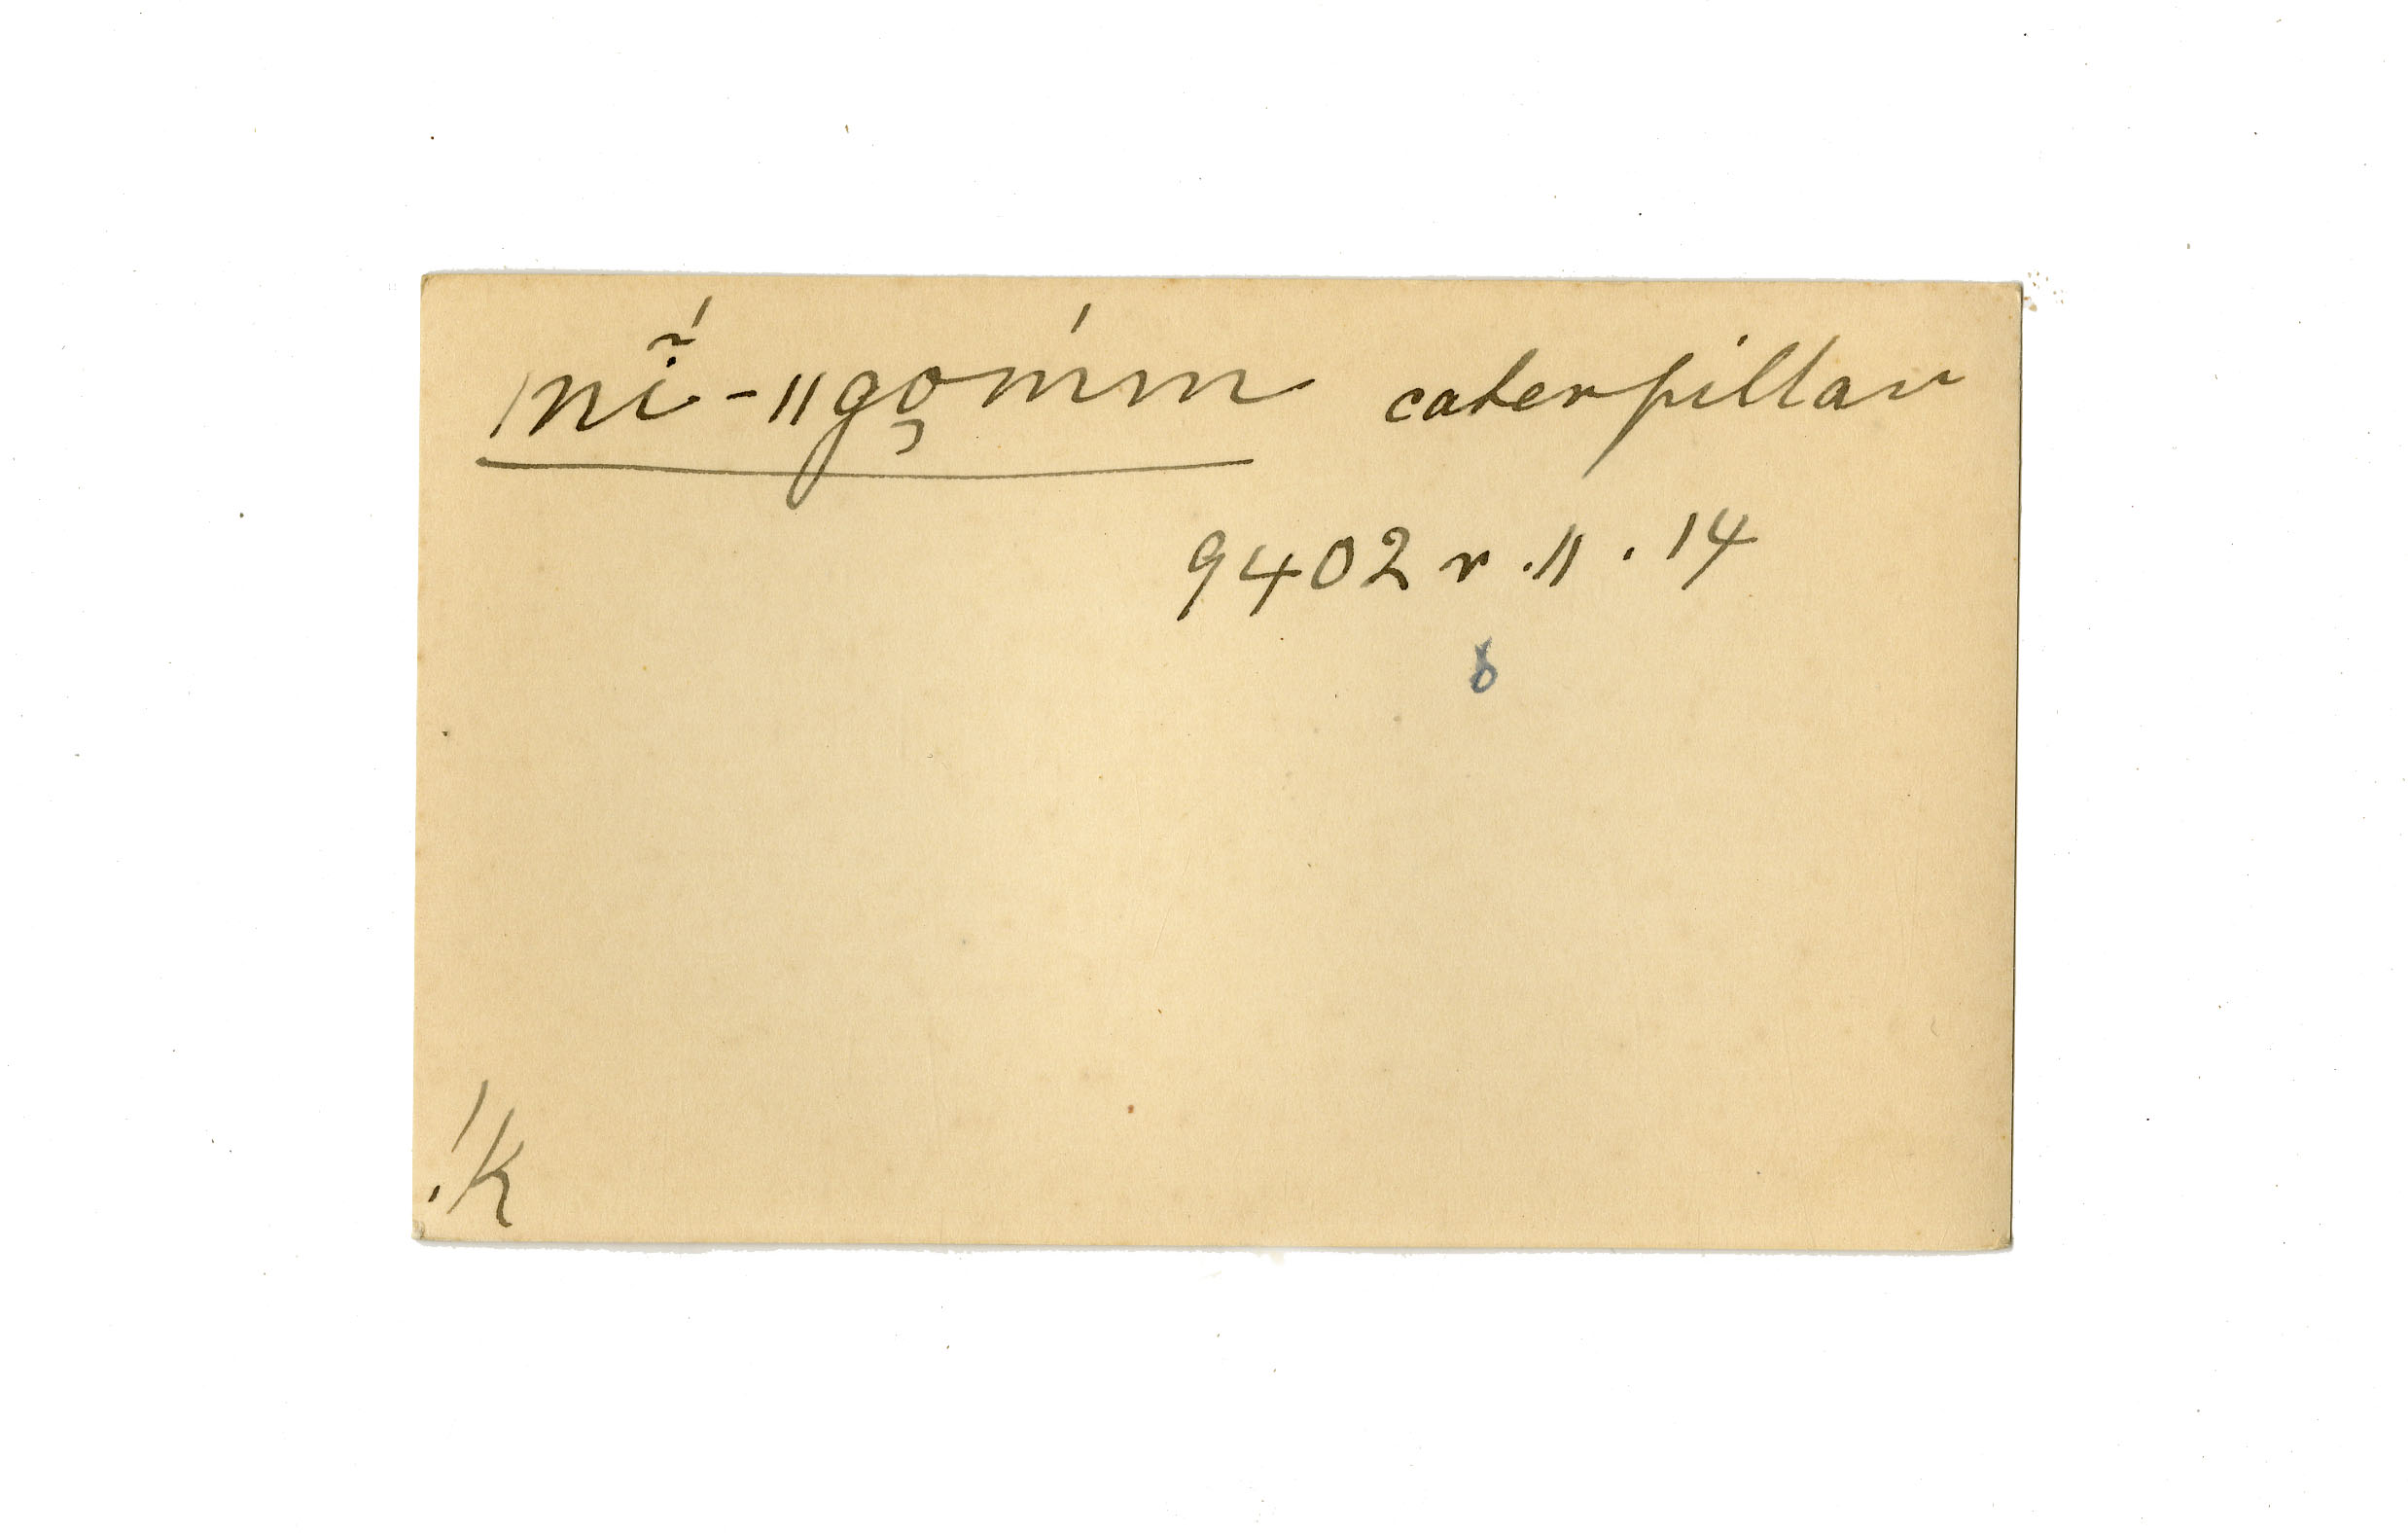 |nĩ́-||gǫḿm caterpillar
9402 r. 11 . 14
6
.|K